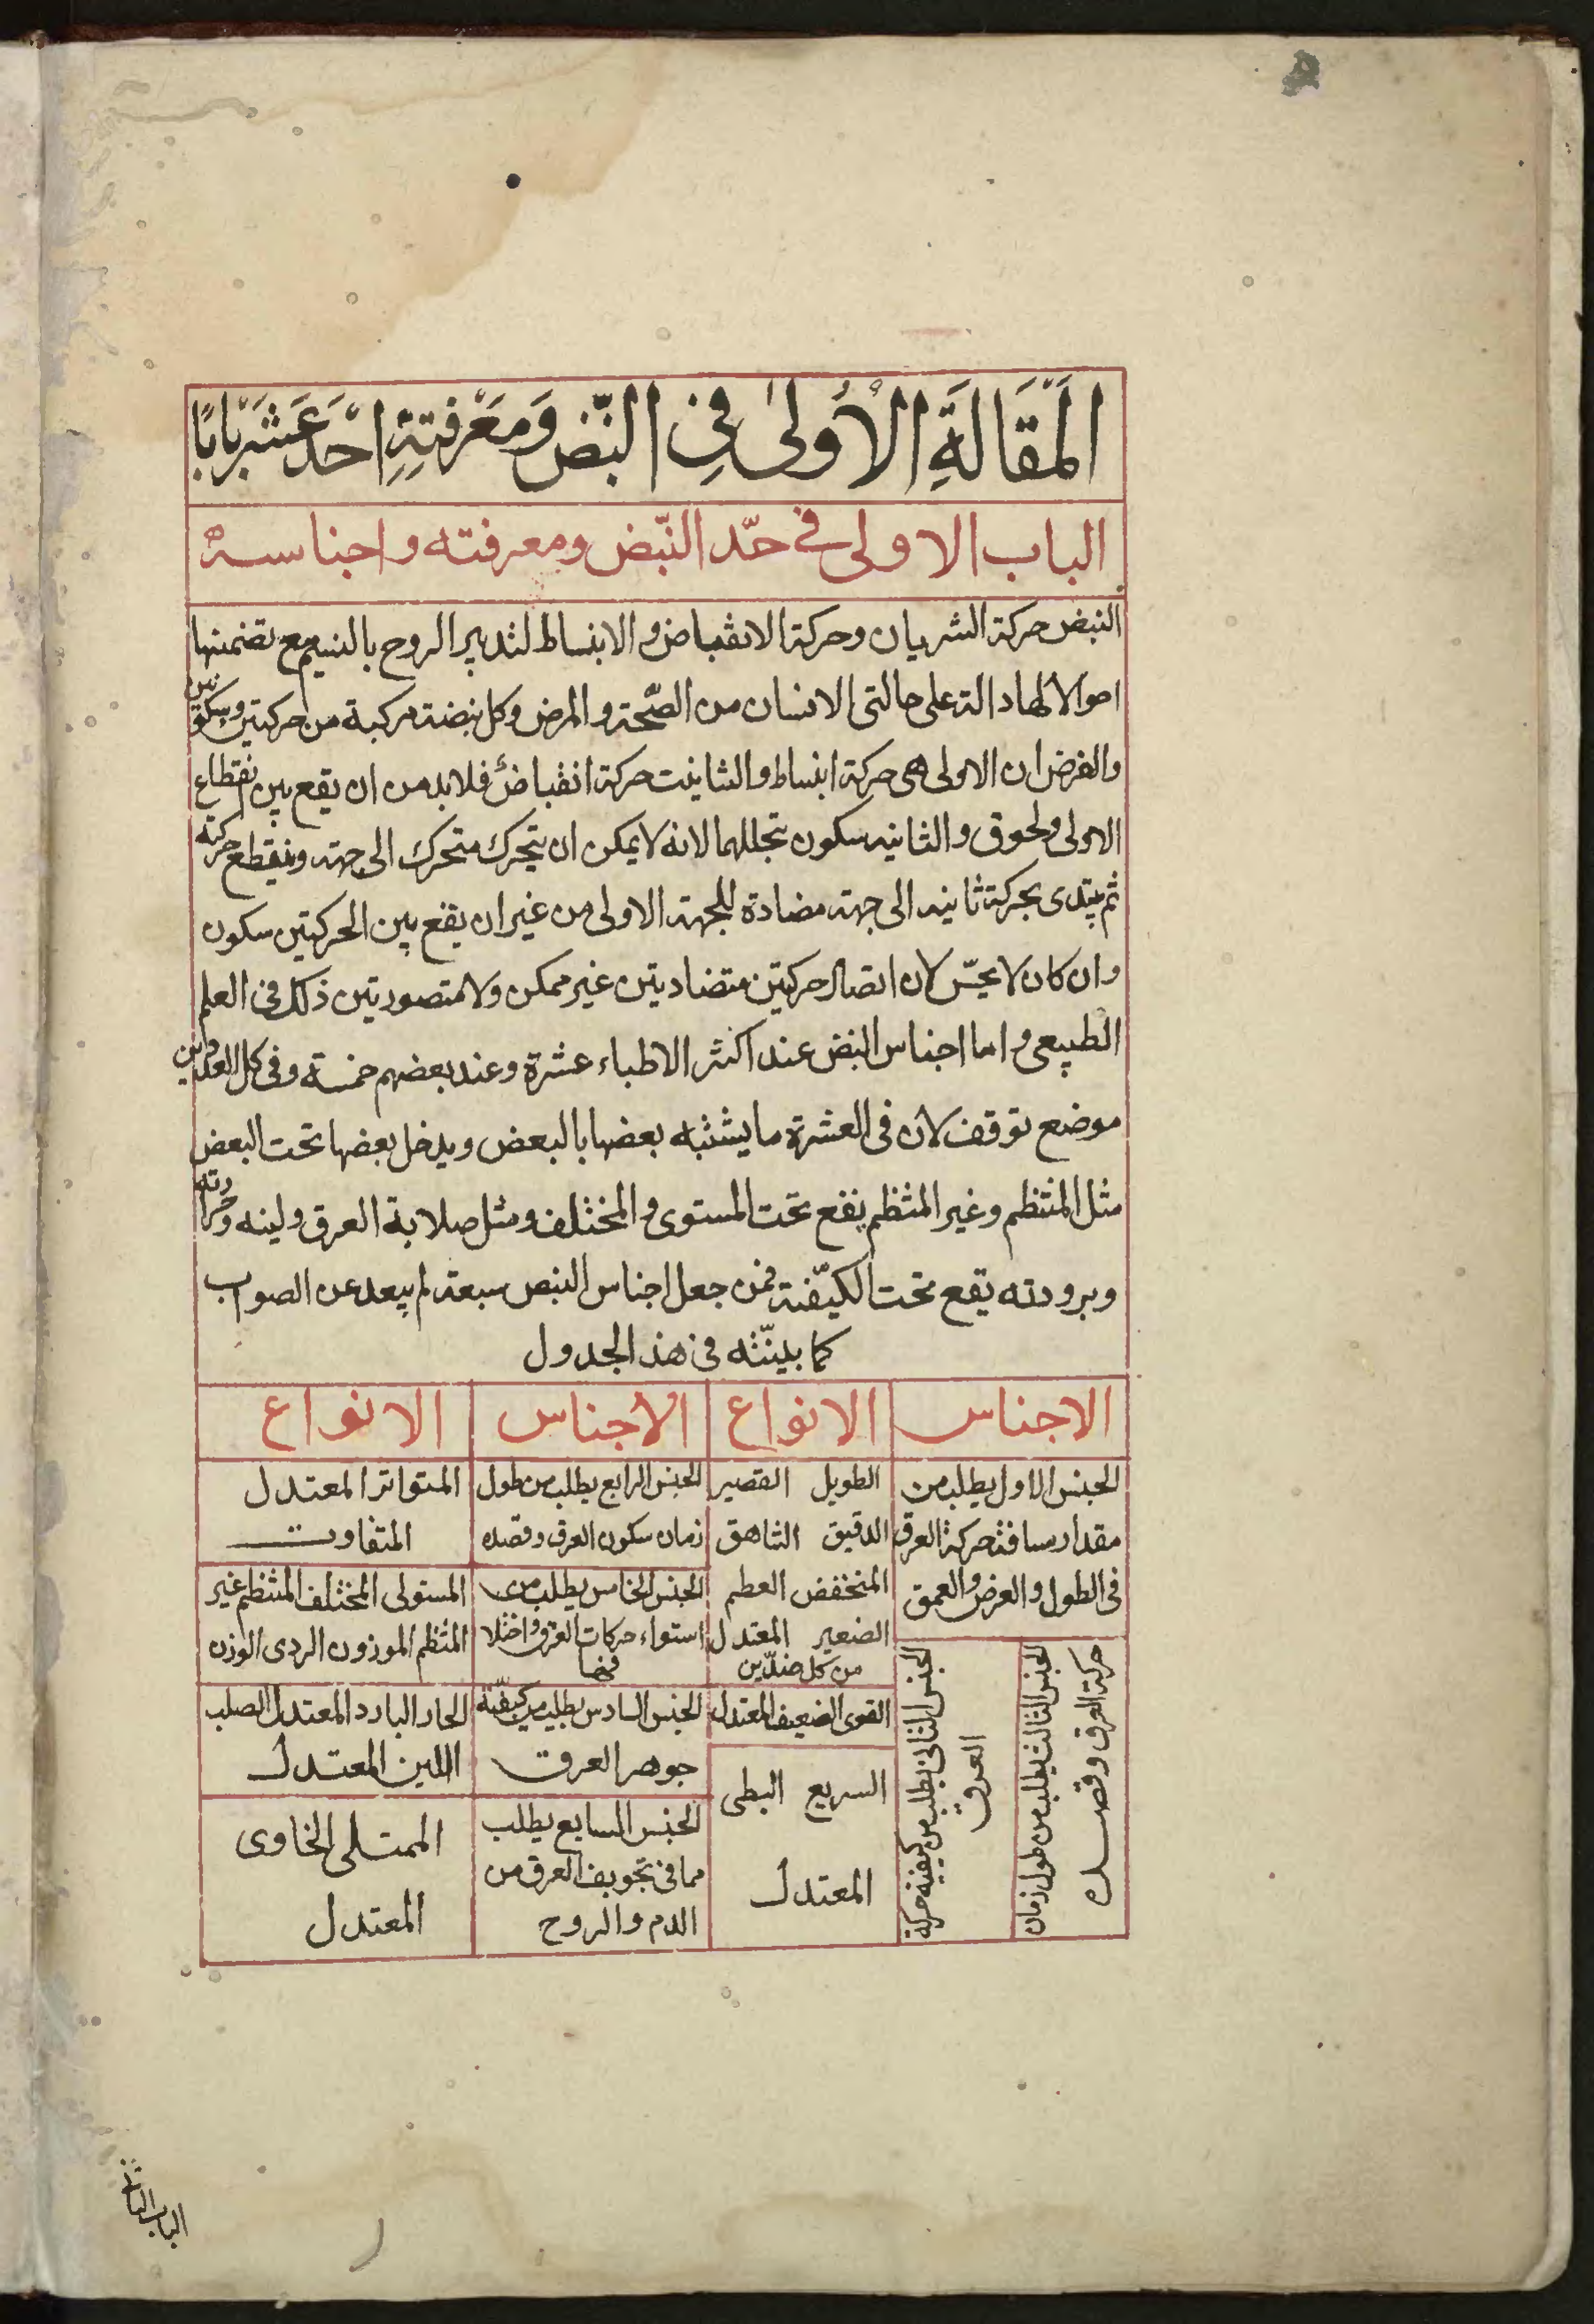 المَقَالَةِ الأُولىٰ فِي النّبْض وَمَعْرِفَتِهِ اَحَدَ عَشَرَ بَابًا
الباب الاولى في حدّ النّبض ومعرفته واجناسه
النبض حركة الشريان وحركة الانقباض والانبساط لتدبير الروح بالنسيم مع تضمنها
احوالا لها دالة على حالتى الانسان من الصّحة والمرض وكل نبضة مركبة من حركتين وسكونين
والغرض ان الاولى هى حركة انبساط والثانيت حركة انقباض فلا بد من ان يقع بين انقطاع
الاولى ولحوق والثانيه سكون تجللهما لانه لا يمكن ان يتحرك متحرك الى جهة وينقطع حركته
ثم يبتدى بحركة ثانيه الى جهة مضادة للجهة الاولى من غير ان يقع بين الحركتين سكون
وان كان لا يحسّ لان اتصال حركتين متضاديتين غير ممكن ولا متصوريتين ذلك فى العلم
الطبيعى واما اجناس النبض عند اكثر الاطباء عشرة وعند بعضهم خمسة وفى كل العددين
موضع توقف لان فى العشرة ما يشتبه بعضها بالبعض ويدخل بعضها تحت البعض
مثل المنتظم وغير المنتظم يقع تحت المستوى والمختلف ومثل صلابة العرق ولينه وحرارته
وبرودته يقع تحت الكيّفية فمن جعل اجناس النبض سبعة لم يبعد عن الصواب
كما بيّنته فى هذ الجدول
الاجناس الانواع الاجناس الانواع
الجنس الاول يطلب من
مقدار مسافة حركة العرق
فى الطول والعرض والعمق
الطويل القصير
الدقيق الشاهق
المنخفض العطم
الصغير المعتدل
من كل ضدّين
الجنس الثانى يطلب من كيفية حركة
العروق
القوى الضعيف المعتدل
الجنس الثالث يطلب من طول زمان
حركة العرق وقصره
السريع البطى
المعتدل
الجنس الرابع يطلب من طول
زمان سكون العرق وقصده
المتواتر المعتدل
المتفاوت
الجنس الخامس يطلب من
استواء حركات العرق واختلا
فها
المستولى المختلف المنتظم غير
المنتظم الموزون الردى الوزن
الجنس السادس يطلب من كيفّية
جوهر العرق
الحار البارد المعتدل الصلب
اللين المعتدل
الجنس السابع يطلب
مما فى تجويف العرق من
الدم والروح
الممتلى الخاوى
المعتدل
الباب الثانى